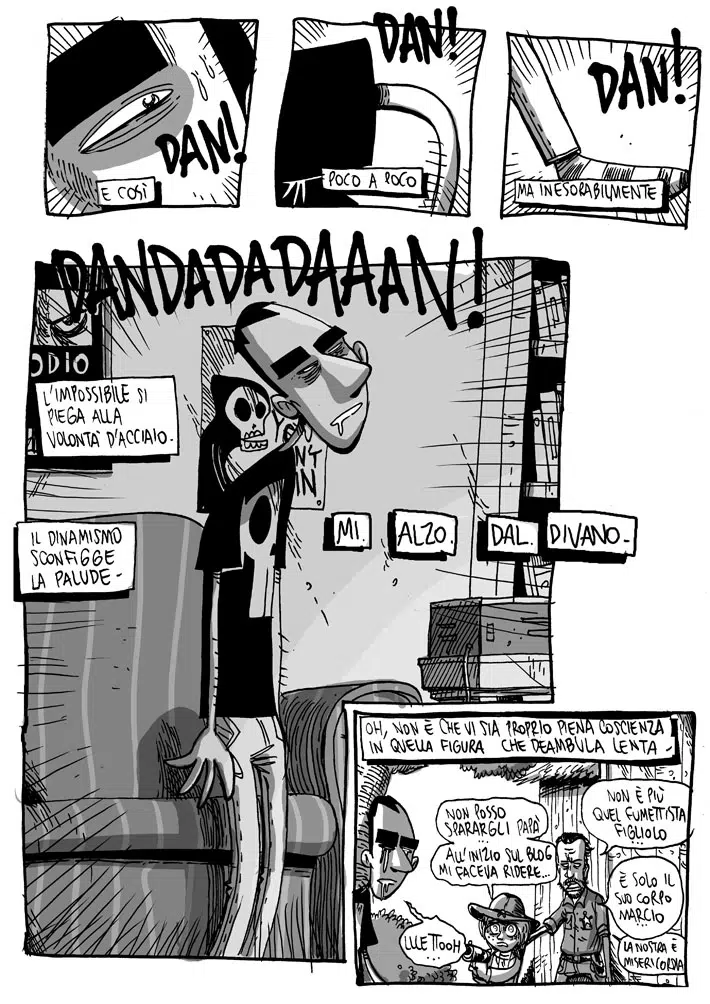 DAN!
E COSÌ
DAN!
POCO A POCO
DAN!
MA INESORABILMENTE
DANDADADAAAAN!
ODIO
L'IMPOSSIBILE SI
PIEGA ALLA
VOLONTÀ D'ACCIAIO.
IL DINAMISMO
SCONFIGGE
LA PALUDE-
MI. ALZO. DAL. DIVANO.
OH, NON È CHE VI SIA PROPRIO PIENA COSCIENZA
IN QUELLA FIGURA CHE DEAMBULA LENTA-
NON POSSO
SPARARGLI PAPÀ
...
ALL'INIZIO SUL BLOG
MI FACEVA RIDERE...
NON È PIÙ
QUEL FUMETTISTA
FIGLIOLO
...
È SOLO IL
SUO CORPO
MARCIO
...
LA NOSTRA È
MISERICORDIA